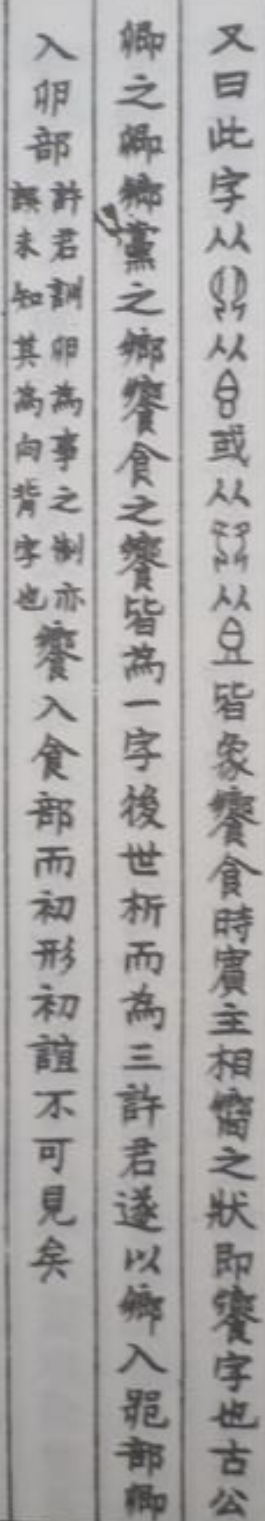 又曰此字从𠨍从皀或从𠨍从㿝皆象饗食時賓主相嚮之狀即饗字也古公
卿之卿鄉黨之鄉饗食之饗皆為一字後世析而為三許君遂以鄉入𨛜部卿
入卯部許君訓卯為事之制亦誤未知其為向背字也饗入食部而初形初誼不可見矣